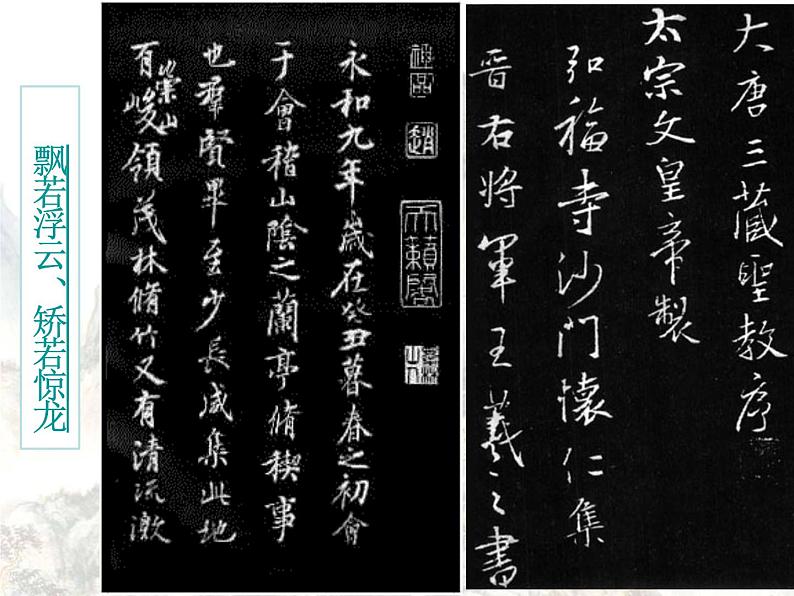 飘若浮云、矫若惊龙
神品
趙
天籟閣
永和九年歲在癸丑暮春之初會
于會稽山陰之蘭亭脩稧事
也羣賢畢至少長咸集此地
有崇山峻領茂林脩竹又有清流激
大唐三藏聖教序
太宗文皇帝製
弘福寺沙門懷仁集
晉右將軍王羲之書